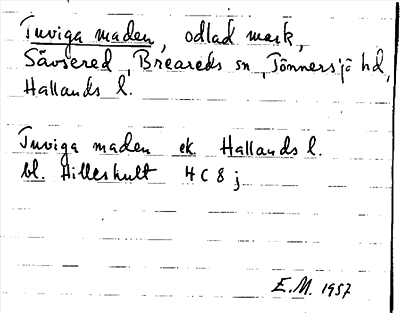 Tuviga maden, odlad mark,
Sävsered, Breareds sn, Tönnersjö hd,
Hallands l.
Tuviga maden ek. Hallands l.
bl. Hilleshult 4C8j
E.M. 1957